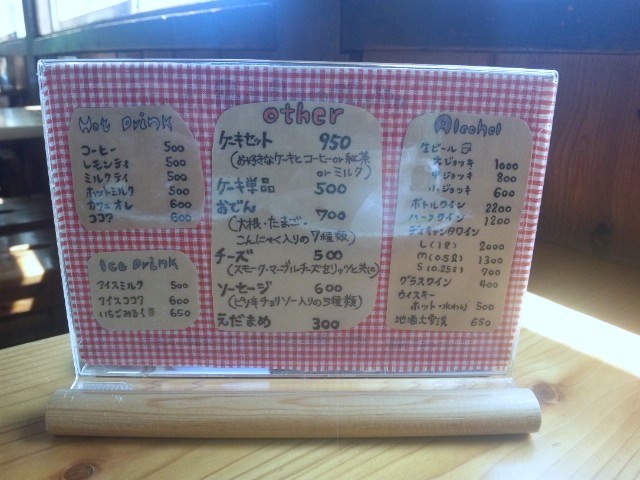 Hot Drink
コーヒー 500
レモンティ 500
ミルクティ 500
ホットミルク 500
カフェオレ 600
ココア 600
Ice Drink
アイスミルク 500
アイスココア 600
いちごみるく 650
other
ケーキセット 950
(お好きなケーキとコーヒーor紅茶
orミルク)
ケーキ単品 500
おでん 700
(大根・たまご・
こんにゃく入りの7種類)
チーズ 500
(スモーク・マーブルチーズをリッツと共に)
ソーセージ 600
(ピリ辛チョリソー入りの3種類)
えだまめ 300
Alcohol
生ビール
大ジョッキ 1000
中ジョッキ 800
小ジョッキ 600
ボトルワイン 2200
ハーフワイン 1200
デキャンタワイン
L(1ℓ) 2000
M(0.5ℓ) 1300
S(0.25ℓ) 700
グラスワイン 400
ウィスキー
ホット・水わり 500
地酒 650